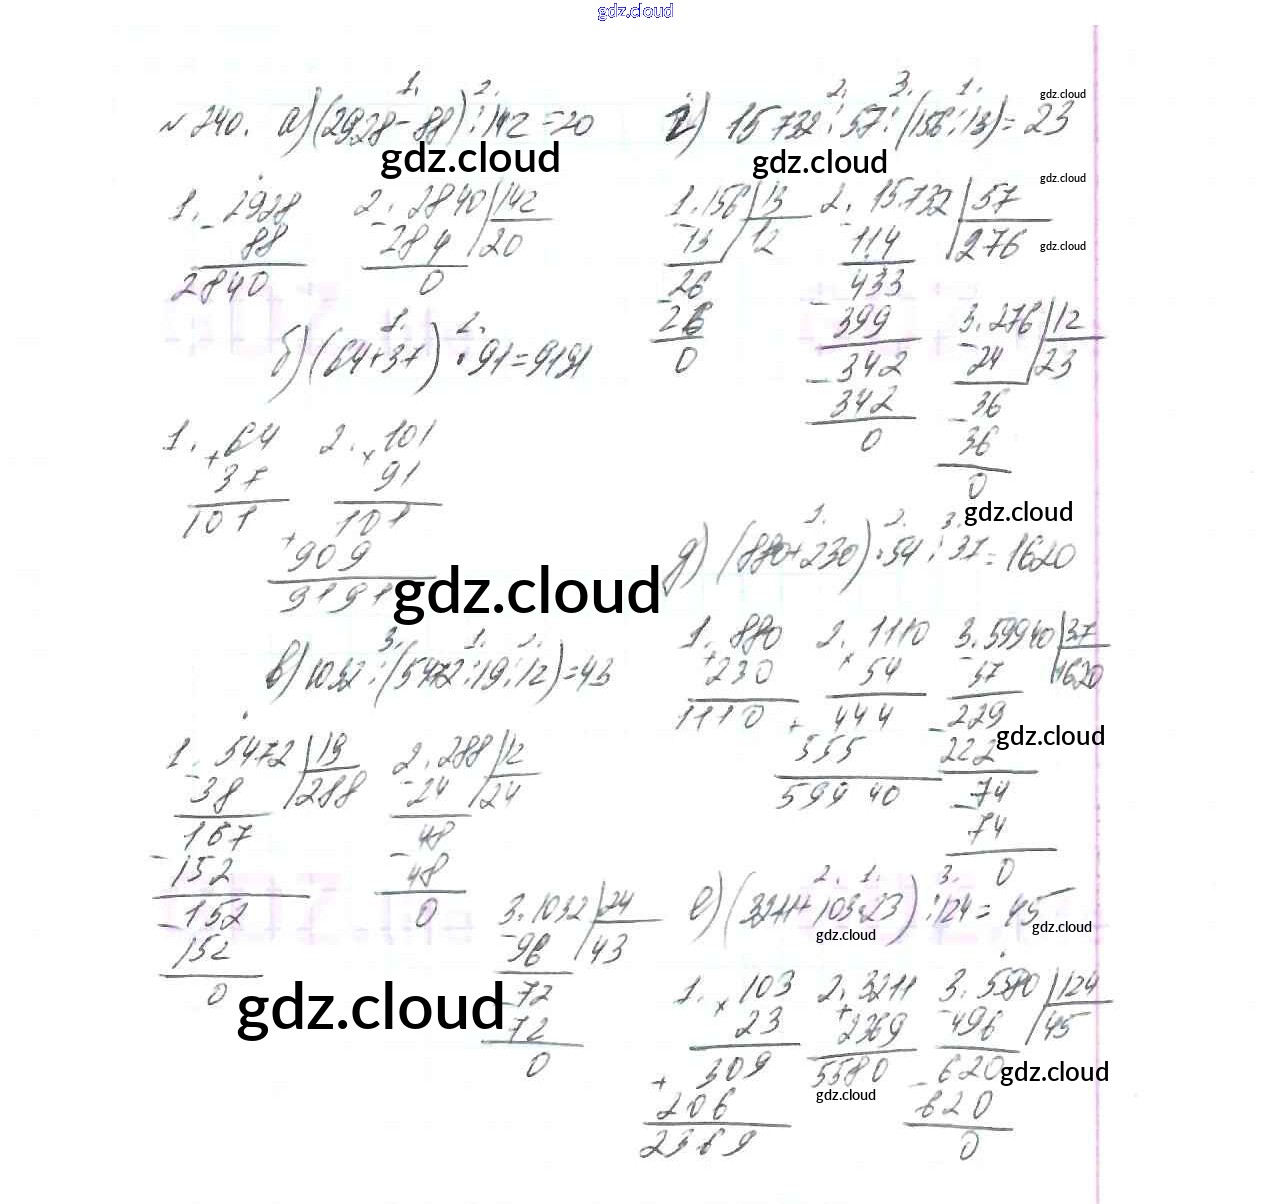 gdz.cloud
№ 240. а) (2928 - 88) : 142 = 20
1. 2.
1. - 2928
88
2840
2. - 2840 | 142
284 | 20
0
б) (64 + 37) · 91 = 9191
1. 2.
1. + 64
37
101
2. × 101
91
101
+ 909
9191
в) 1032 : (5472 : 19 : 12) = 43
3. 1. 2.
1. - 5472 | 19
38 | 288
167
- 152
- 152
152
0
2. - 288 | 12
24 | 24
48
- 48
0
3. - 1032 | 24
96 | 43
- 72
72
0
г) 15732 : 57 : (156 : 13) = 23
2. 3. 1.
1. - 156 | 13
13 | 12
- 26
26
0
2. - 15732 | 57
114 | 276
- 433
399
- 342
342
0
3. - 276 | 12
24 | 23
- 36
36
0
д) (880 + 230) · 54 : 37 = 1620
1. 2. 3.
1. + 880
230
1110
2. × 1110
54
+ 444
555
59940
3. - 59940 | 37
37 | 1620
- 229
222
- 74
74
0
е) (3211 + 103·23) : 124 = 45
2. 1. 3.
1. × 103
23
+ 309
206
2369
2. + 3211
2369
5580
3. - 5580 | 124
496 | 45
- 620
620
0
gdz.cloud
gdz.cloud
gdz.cloud
gdz.cloud
gdz.cloud
gdz.cloud
gdz.cloud
gdz.cloud
gdz.cloud
gdz.cloud
gdz.cloud
gdz.cloud
gdz.cloud